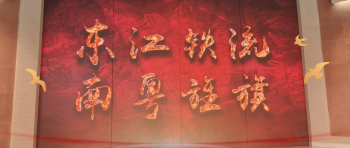 东江铁流
南粤旌旗